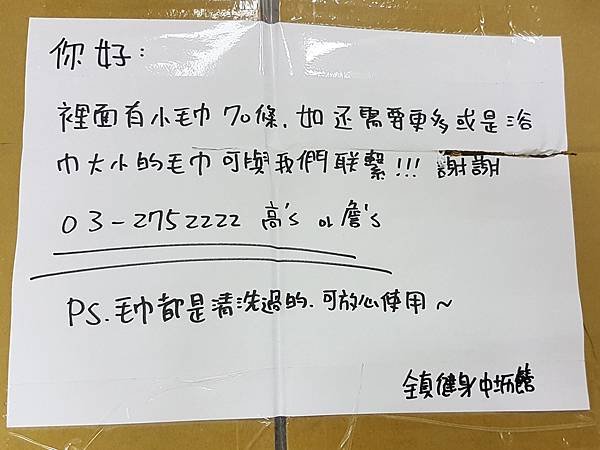 你好：
裡面有小毛巾70條，如还需要更多或是浴
巾大小的毛巾可與我們联繫!!! 謝謝
03-2752222 高's or 詹's
PS. 毛巾都是清洗過的，可放心使用~
全真健身中坜館